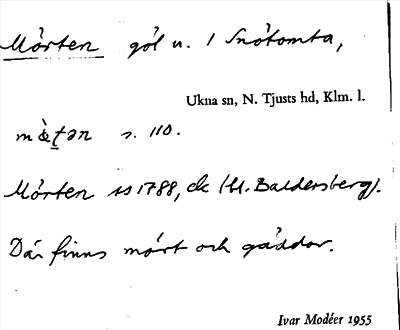 Mörten göl u. 1 Snötomta,
Ukna sn, N. Tjusts hd, Klm. l.
s. 110.
Mörten 1788, ck (bl. Baldersberg).
Där finns mört och gäddor.
Ivar Modéer 1955